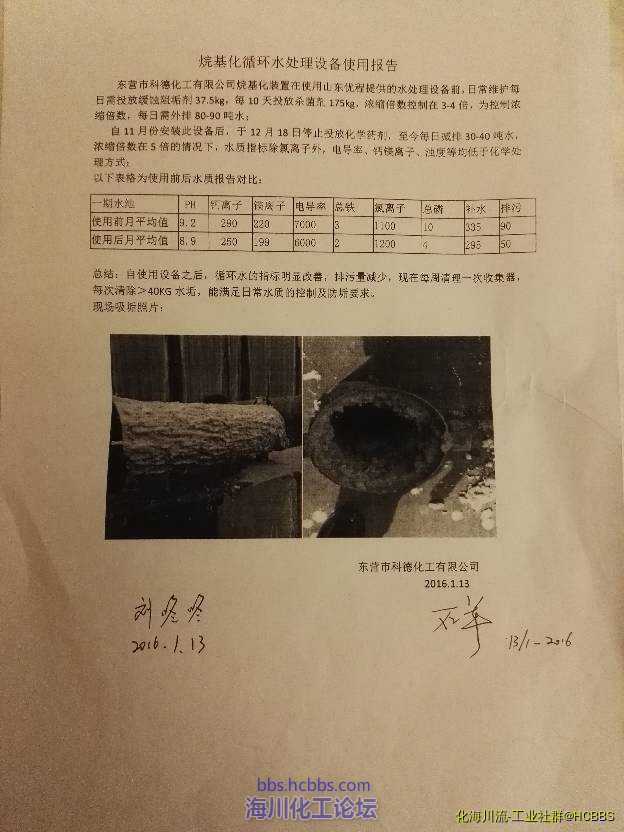 烷基化循环水处理设备使用报告
东营市科德化工有限公司烷基化装置在使用山东优程提供的水处理设备前,日常维护每
日需投放缓蚀阻垢剂37.5kg,每10天投放杀菌剂175kg,浓缩倍数控制在3-4倍,为控制浓
缩倍数,每日需外排80-90吨水;
自11月份安装此设备后,于12月18日停止投放化学药剂,至今每日减排30-40吨水,
浓缩倍数在5倍的情况下,水质指标除氯离子外,电导率、钙镁离子、浊度等均低于化学处
理方式;
以下表格为使用前后水质报告对比:
一期水池 PH 钙离子 镁离子 电导率 总铁 氯离子 总磷 补水 排污
使用前月平均值 9.2 290 220 7000 3 1100 10 335 90
使用后月平均值 8.9 250 199 6000 2 1200 4 295 50
总结:自使用设备之后,循环水的指标明显改善,排污量减少,现在每周清理一次收集器,
每次清除≥40KG水垢,能满足日常水质的控制及防垢要求。
现场吸垢照片:
东营市科德化工有限公司
2016.1.13
刘
2016.1.13
13/1-2016
bbs.hcbbs.com
海川化工论坛
化海川流-工业社群@HCBBS